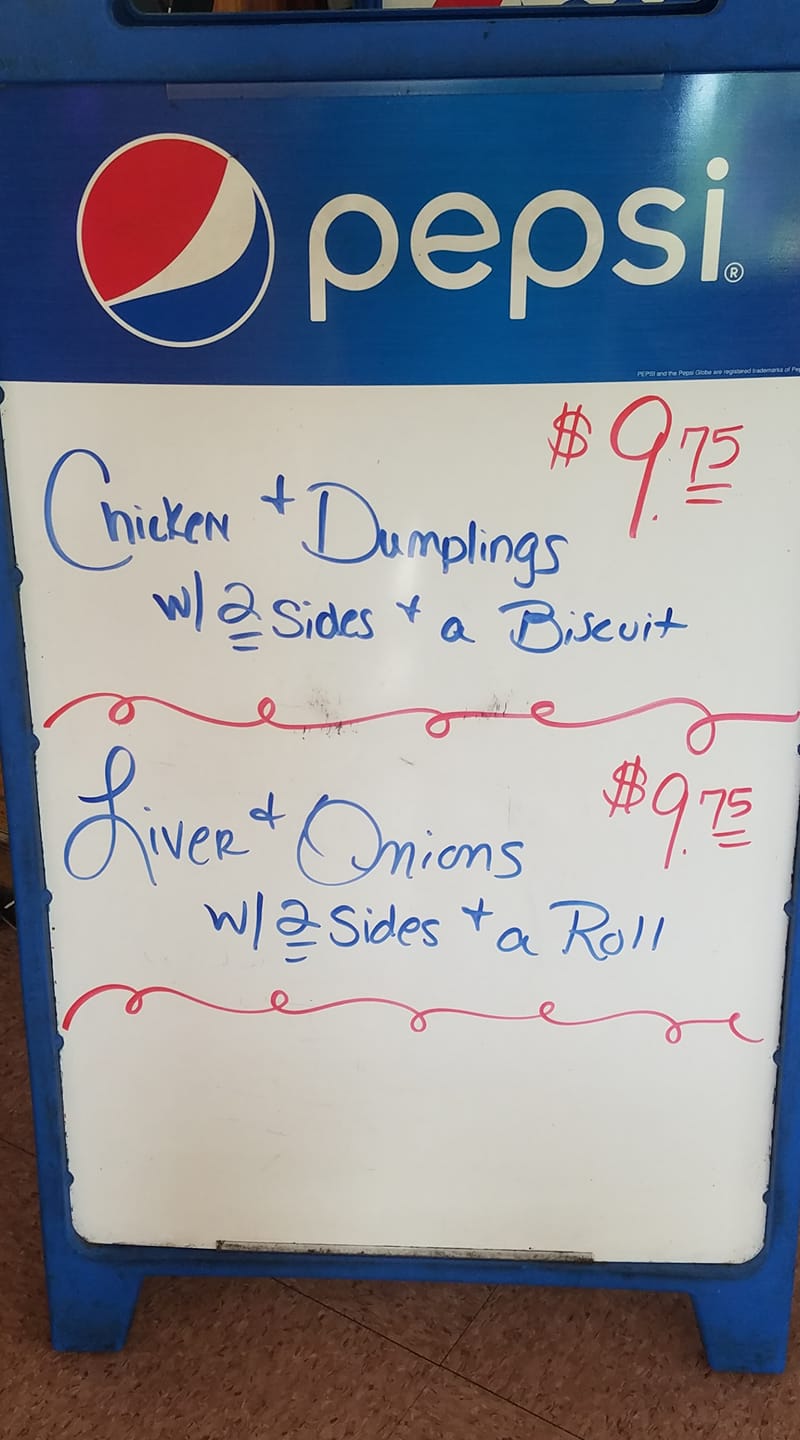 pepsi®
PEPSI and the Pepsi Globe are registered trademarks of
$9.75
Chicken + Dumplings
w/ 2 Sides + a Biscuit
$9.75
Liver + Onions
w/ 2 Sides + a Roll